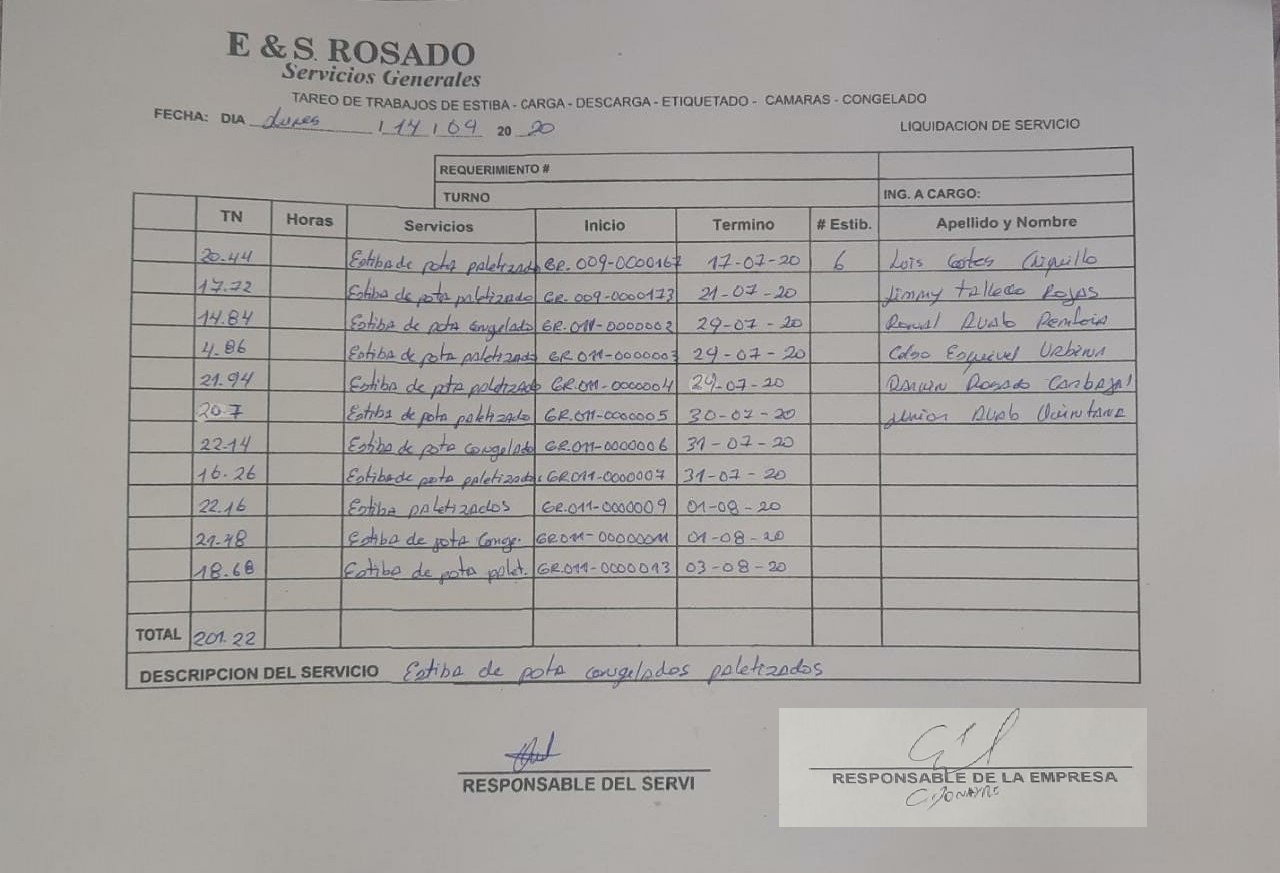 E & S. ROSADO
Servicios Generales
TAREO DE TRABAJOS DE ESTIBA - CARGA - DESCARGA - ETIQUETADO - CAMARAS - CONGELADO
FECHA: DIA Lunes 14 09 20 20
LIQUIDACION DE SERVICIO
REQUERIMIENTO #
TURNO ING. A CARGO:
TN Horas Servicios Inicio Termino # Estib. Apellido y Nombre
20.44 Estiba de pota paletizado GR. 009-0000167 17-07-20 6 Luis Cortes Chiquillo
17.72 Estiba de pota paletizado GR. 009-0000173 21-07-20 Jimmy Talledo Rojas
14.84 Estiba de pota congelado GR.011-0000002 29-07-20
4.86 Estiba de pota paletizado GR.011-0000003 29-07-20 Esquivel Urbina
21.94 Estiba de pota paletizado GR.011-0000004 29-07-20 Darwin Rosado Carbajal
20.7 Estiba de pota paletizado GR.011-0000005 30-07-20 Junior Quintana
22.14 Estiba de pota congelado GR.011-0000006 31-07-20
16.26 Estiba de pota paletizado GR.011-0000007 31-07-20
22.16 Estiba paletizados GR.011-0000009 01-08-20
Estiba de pota conge. 01-08-20
18.68 Estiba de pota palet. GR.011-0000013 03-08-20
TOTAL 201.22
DESCRIPCION DEL SERVICIO Estiba de pota congelados paletizados
RESPONSABLE DEL SERVI
RESPONSABLE DE LA EMPRESA